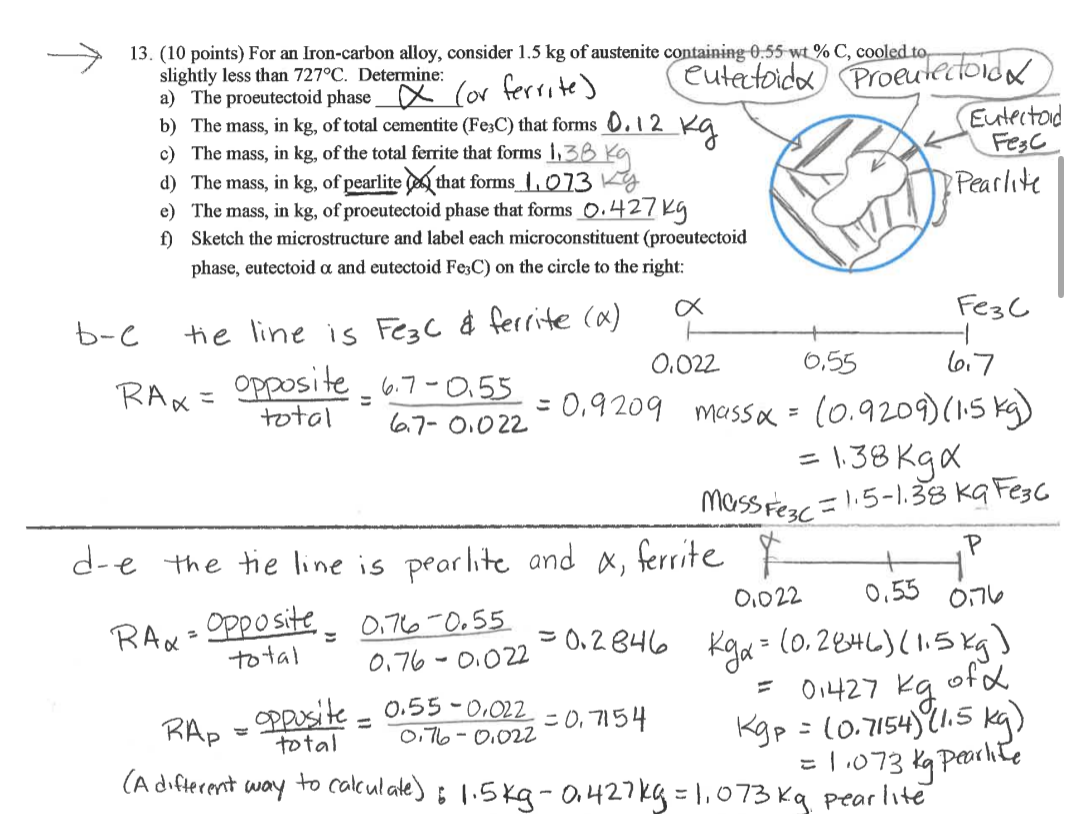 13. (10 points) For an Iron-carbon alloy, consider 1.5 kg of austenite containing 0.55 wt % C, cooled to
slightly less than 727°C. Determine:
eutectoid α
Proeutectoid α
a) The proeutectoid phase α (or ferrite)
Eutectoid
Fe3C
b) The mass, in kg, of total cementite (Fe₃C) that forms 0.12 Kg
c) The mass, in kg, of the total ferrite that forms 1.38 Kg
d) The mass, in kg, of pearlite that forms 1.073 Kg
Pearlite
e) The mass, in kg, of proeutectoid phase that forms 0.427 Kg
f) Sketch the microstructure and label each microconstituent (proeutectoid
phase, eutectoid α and eutectoid Fe₃C) on the circle to the right:
b-c tie line is Fe3C & ferrite (α)
α Fe3C
0.022 0.55 6.7
RAα = opposite / total = 6.7 - 0.55 / 6.7 - 0.022 = 0.9209
mass α = (0.9209)(1.5 kg)
= 1.38 Kg α
Mass Fe3C = 1.5-1.38 kg Fe3C
d-e the tie line is pearlite and α, ferrite
P
0.022 0.55 0.76
RAα = opposite / total = 0.76 - 0.55 / 0.76 - 0.022 = 0.2846
Kgα = (0.2846)(1.5 kg)
= 0.427 kg of α
RAp = opposite / total = 0.55 - 0.022 / 0.76 - 0.022 = 0.7154
Kgp = (0.7154)(1.5 kg)
= 1.073 kg Pearlite
(A different way to calculate) : 1.5 kg - 0.427 kg = 1.073 Kg pearlite